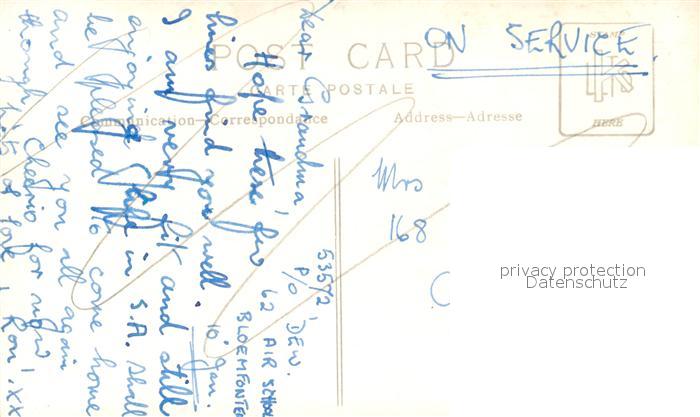 ON SERVICE
POST CARD
CARTE POSTALE
STAMP
HERE
Communication—Correspondance
Address—Adresse
53572, DEW.
P/O
62 AIR SCHOOL
BLOEMFONTEI
10 Jan.
Dear Grandma,
Hope these few
lines find you well.
I am very fit and still
enjoying life in S.A. Shall
be pleased to come home
and see you all again
though. Cheerio for now
lots of love, Ron. xx
Mrs
168
privacy protection
Datenschutz